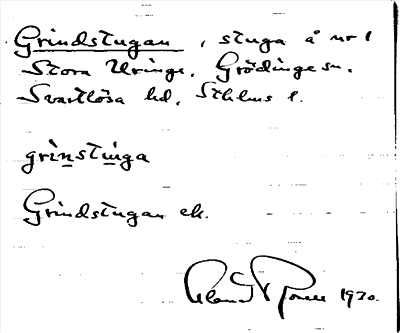 Grindstugan, stuga å nr 1
Stora Uringe, Grödinge sn.
Svartlösa hd, Sthlms l.
grìnstùga
Grindstugan ek.
1920.